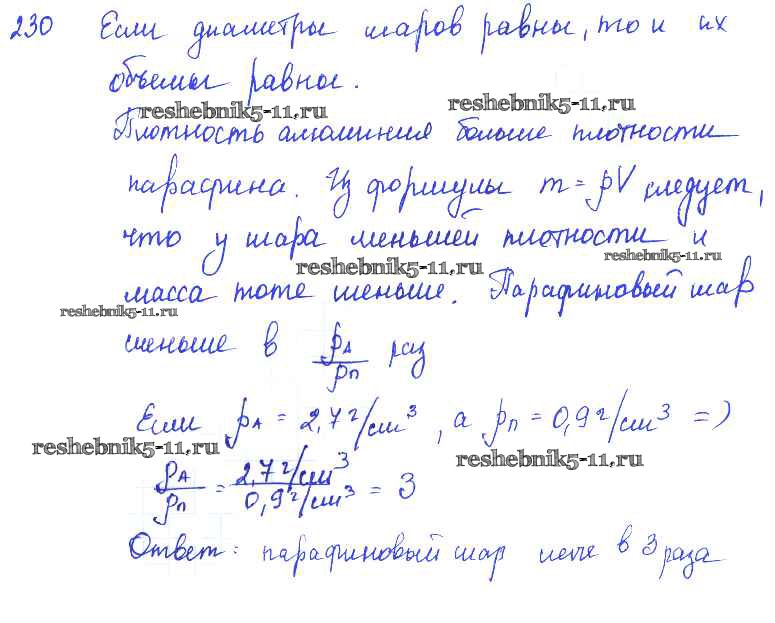 230 Если диаметры шаров равны, то и их
объемы равны.
reshebnik5-11.ru reshebnik5-11.ru
Плотность алюминия больше плотности
парафина. Из формулы m = ρV следует,
что у шара меньшей плотности и
reshebnik5-11.ru reshebnik5-11.ru
масса тоже меньше. Парафиновый шар
reshebnik5-11.ru
меньше в ρА/ρп раз
Если ρА = 2,7 г/см³, а ρп = 0,9 г/см³ =>
reshebnik5-11.ru reshebnik5-11.ru
ρА/ρп = 2,7 г/см³ / 0,9 г/см³ = 3
Ответ: парафиновый шар легче в 3 раза